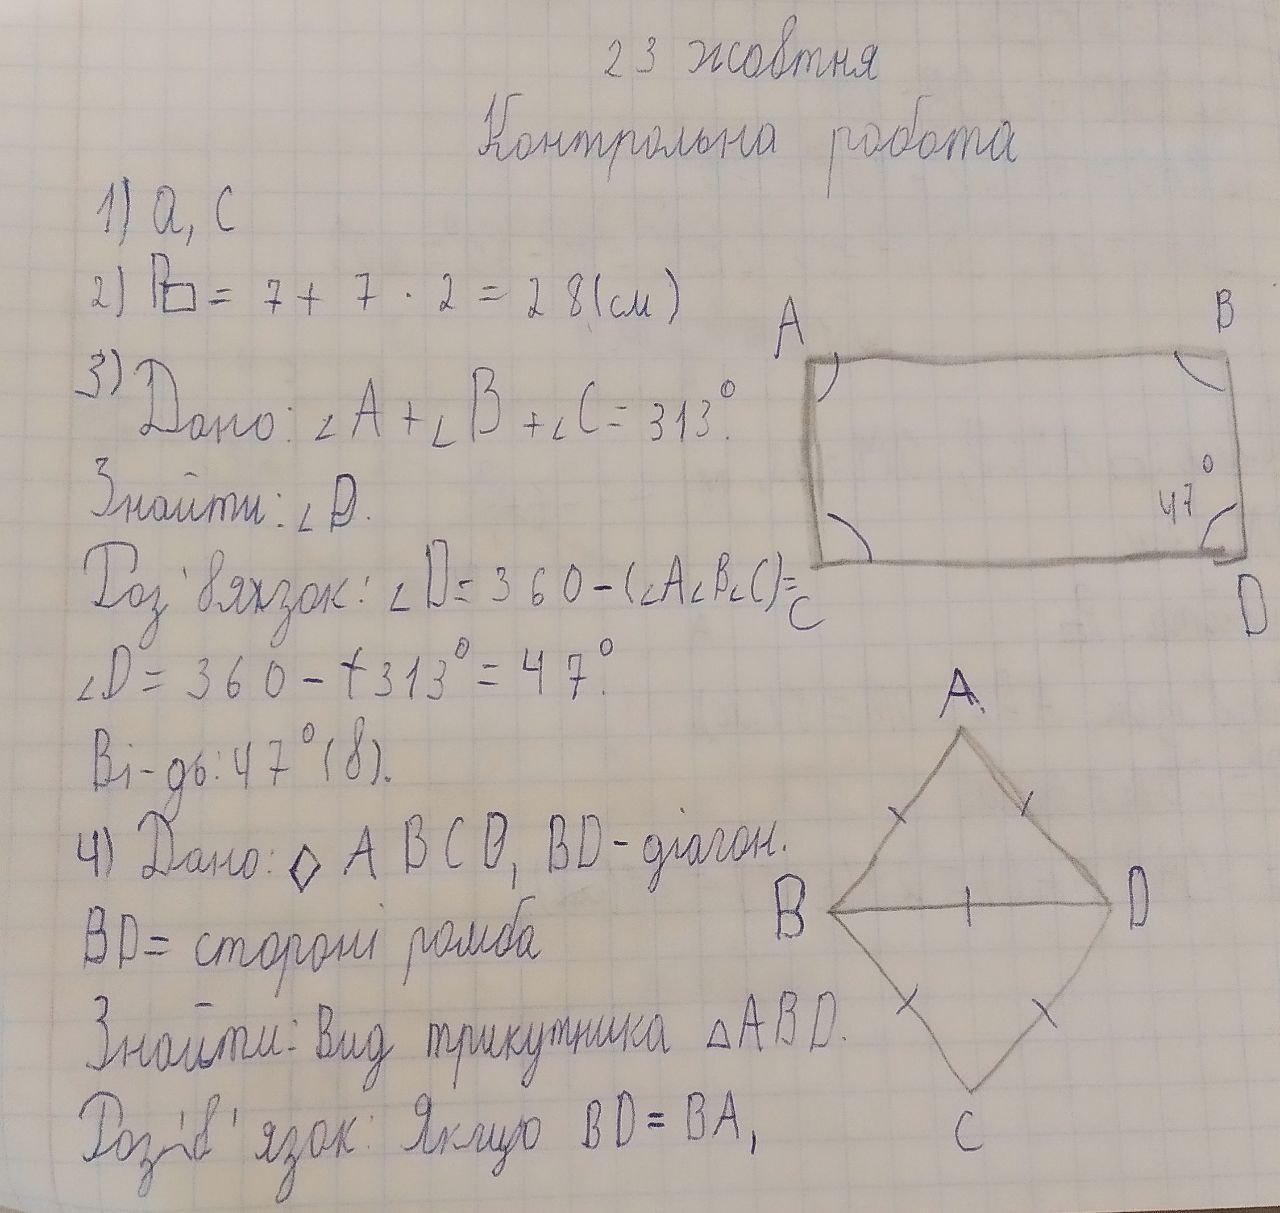 23 жовтня
Контрольна робота
1) а, с
2) P▭ = 7 + 7 · 2 = 28 (см)
3) Дано: ∠A + ∠B + ∠C = 313°.
Знайти: ∠D.
Роз'вязок: ∠D = 360 - (∠A∠B∠C) =
∠D = 360 - 313° = 47°.
Ві-дь: 47° (в).
4) Дано: ◇ ABCD, BD - діагон.
BD = стороні ромба
Знайти: Вид трикутника △ABD.
Роз'в'язок: Якщо BD = BA,
A
B
47°
C
D
A
B
D
C